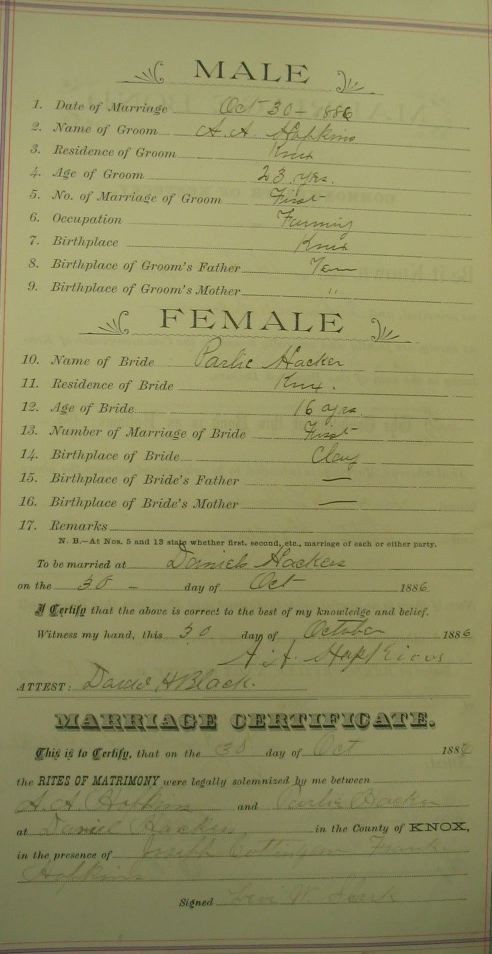 MALE
1. Date of Marriage Oct 30 - 1886
2. Name of Groom A. A. Hopkins
3. Residence of Groom Knx
4. Age of Groom 23 yrs.
5. No. of Marriage of Groom First
6. Occupation Farming
7. Birthplace Knx
8. Birthplace of Groom's Father Ten
9. Birthplace of Groom's Mother "
FEMALE
10. Name of Bride Parlie Hacker
11. Residence of Bride Knx.
12. Age of Bride 16 yrs
13. Number of Marriage of Bride First
14. Birthplace of Bride Clay
15. Birthplace of Bride's Father —
16. Birthplace of Bride's Mother —
17. Remarks
N. B.—At Nos. 5 and 13 state whether first, second, etc., marriage of each or either party.
To be married at Daniel Hackers
on the 30 - day of Oct 1886
I Certify that the above is correct to the best of my knowledge and belief.
Witness my hand, this 30 day of October 1886
A. A. Hopkins
ATTEST: David H Black.
MARRIAGE CERTIFICATE.
This is to Certify, that on the 30 day of Oct 1886
the RITES OF MATRIMONY were legally solemnized by me between
A. A. Hopkins and Parlie Hacker
at Daniel Hackers, in the County of KNOX,
in the presence of Joseph Frank
Hopkins
Signed Levi W.